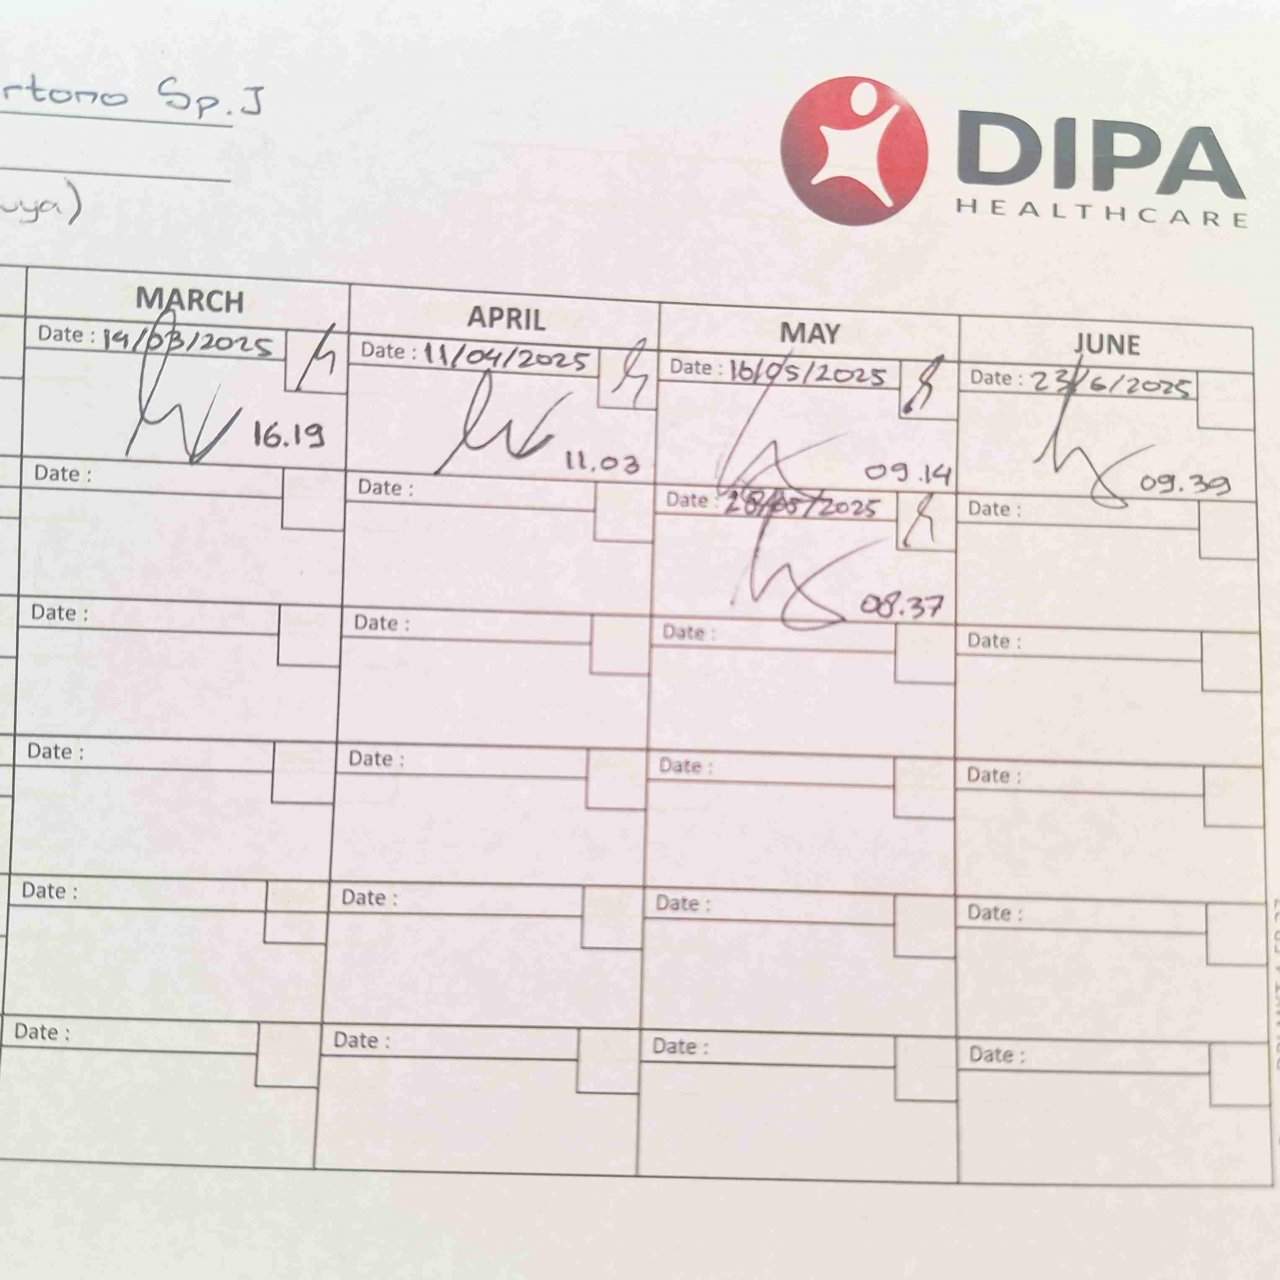 rtono Sp.J
uya)
DIPA
HEALTHCARE
MARCH APRIL MAY JUNE
Date : 14/03/2025 Date : 11/04/2025 Date : 16/05/2025 Date : 23/6/2025
16.19 11.03 09.14 09.39
Date : Date : Date : 28/05/2025 Date :
08.37
Date : Date : Date : Date :
Date : Date : Date : Date :
Date : Date : Date : Date :
Date : Date : Date : Date :